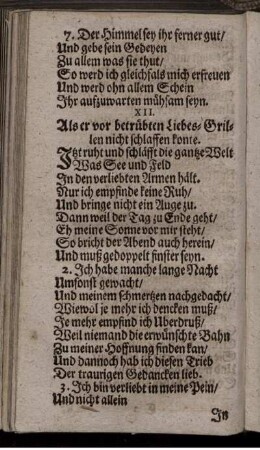 7. Der Himmel sey ihr ferner gut/
Und gebe sein Gedeyen
Zu allem was sie thut/
So werd ich gleichfals mich erfreuen
Und werd ohn allem Schein
Ihr aufzuwarten mühsam seyn.
XII.
Als er vor betrübten Liebes-Gril-
len nicht schlaffen konte.
Itzt ruht und schläfft die gantze Welt
Was See und Feld
In den verliebten Armen hält.
Nur ich empfinde keine Ruh/
Und bringe nicht ein Auge zu.
Dann weil der Tag zu Ende geht/
Eh meine Sonne vor mir steht/
So bricht der Abend auch herein/
Und muß gedoppelt finster seyn.
2. Ich habe manche lange Nacht
Umsonst gewacht/
Und meinem schmertzen nachgedacht/
Wiewol je mehr ich dencken muß/
Je mehr empfind ich Uberdruß/
Weil niemand die erwünschte Bahn
Zu meiner Hoffnung finden kan/
Und dannoch hab ich diesen Trieb
Der traurigen Gedancken lieb.
3. Ich bin verliebt in meine Pein/
Und nicht allein
In